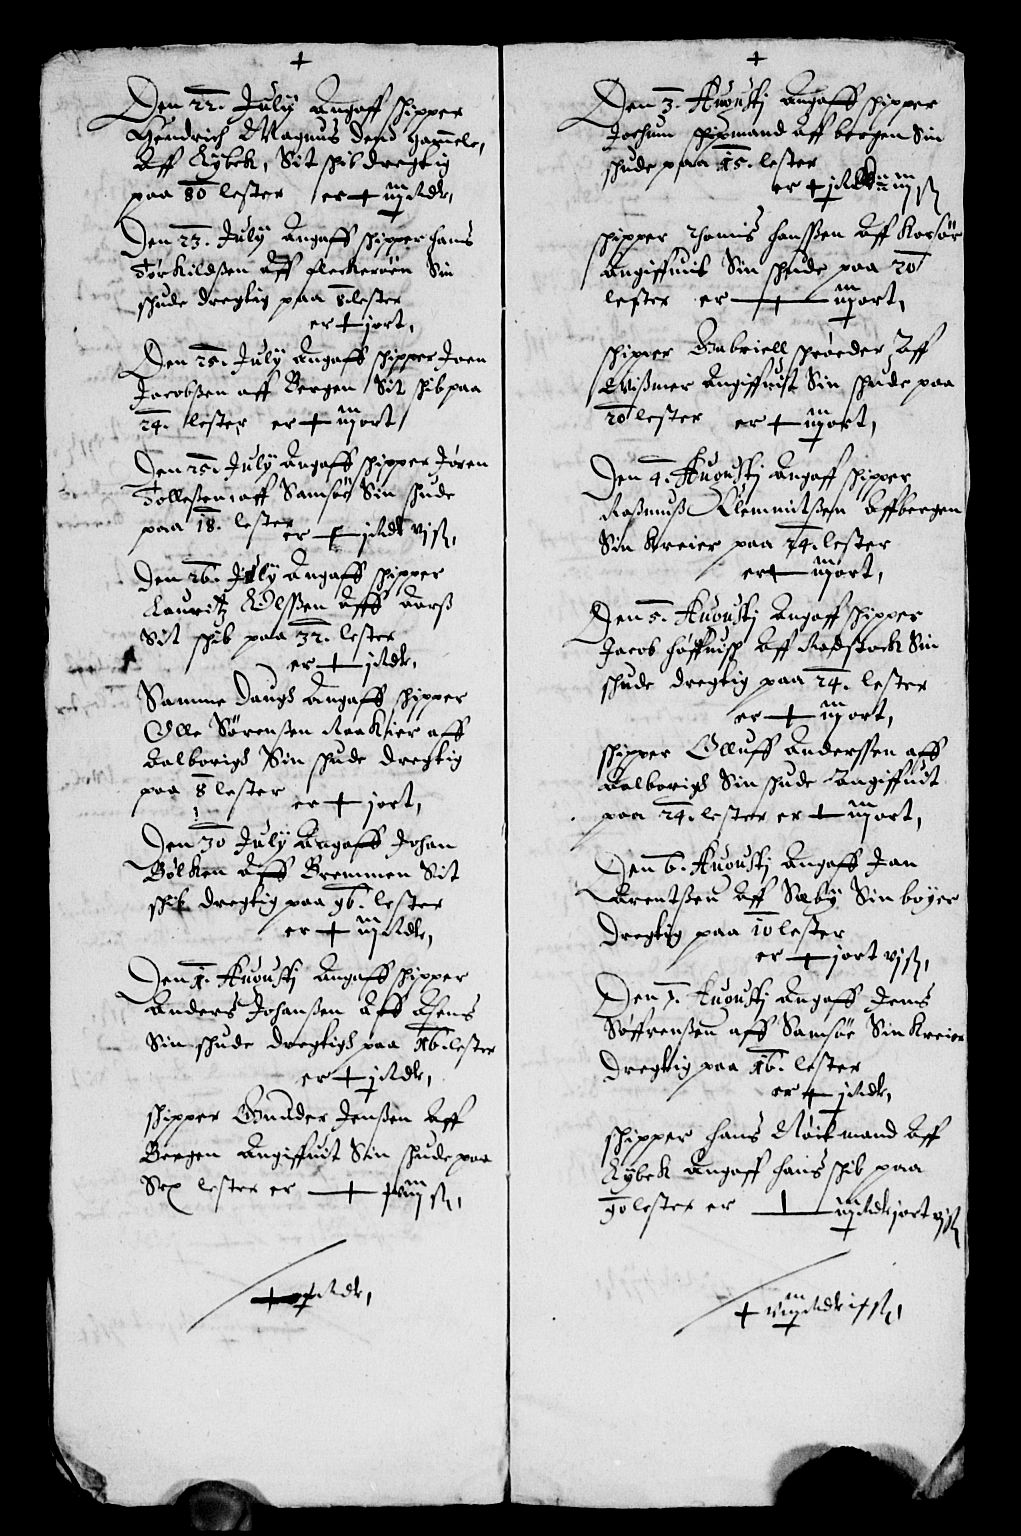 Den 22. July Angaff shipper
Hendrich Magnus dend gamele,
Aff Lybek, Sit shib dregtig
paa 80 lester er iij Rdr,
Den 23. July Angaff shipper hans
Torkildssen Aff flekerøen Sin
shude dregtig paa 8 lester
er j ort,
Den 25. July Angaff shipper Joen
Jacobssen aff Bergen Sit shib paa
24. lester er iij ort
Den 25. July Angaff shipper Jören
Tollessen aff Samsöe Sin shude
paa 18. lester
er j Rdr vj ß,
Den 26. July Angaff shipper
Lauritz Olssen Aff
Sit shib paa 32. lester
er j Rdr,
Samme Daugh Angaff shipper
Olle Sörenssen aff
Aalborigh Sin shude dregtig
paa 8 lester
er j ort,
Den 30 July Angaff Johan
Bölken Aff Bremmen Sit
shib dregtig paa 96. lester
er iij Rdr,
Den 1. Augusti Angaff shipper
Anders Johanssen Aff Asens
Sin shude dregtigh paa 16. lester
er j Rdr,
shipper Gunder Jenssen Aff
Bergen Angiffuit Sin shude paa
Sex lester er ß,
Rdr,
Den 3. Augusti Angaff shipper
Jochum shipmand Aff bergen Sin
shude paa 15. lester
er j Rdr ß
shipper Thomis hanssen Aff Korsör
Angiffuit Sin shude paa 20
lester er iij ort,
shipper Gabriell shröeder Aff
Wissmer Angiffuit Sin shude paa
20 lester er iij ort,
Den 4. Augusti Angaff shipper
Rassmuss Klemmitssen Aff bergen
Sin kreier paa 24. lester
er iij ort,
Den 5. Augusti Angaff shipper
Jacob Aff Rostock Sin
shude dregtig paa 24. lester
er iij ort,
shipper Olluff Anderssen aff
Aalborigh Sin shude Angiffuit
paa 24. lester er iij ort,
Den 6. Augusti Angaff Jan
Arentssen Aff Sæby Sin böyer
Dregtig paa 10 lester
er j ort vj ß,
Den 7. Augusti Angaff Jens
Söffrenssen aff Samsöe Sin kreier
Dregtig paa 16. lester
er j Rdr,
shipper hans Aff
Lybek Angaff hans shib paa
90 lester er iij Rdr j ort vj ß
viij Rdr ß,